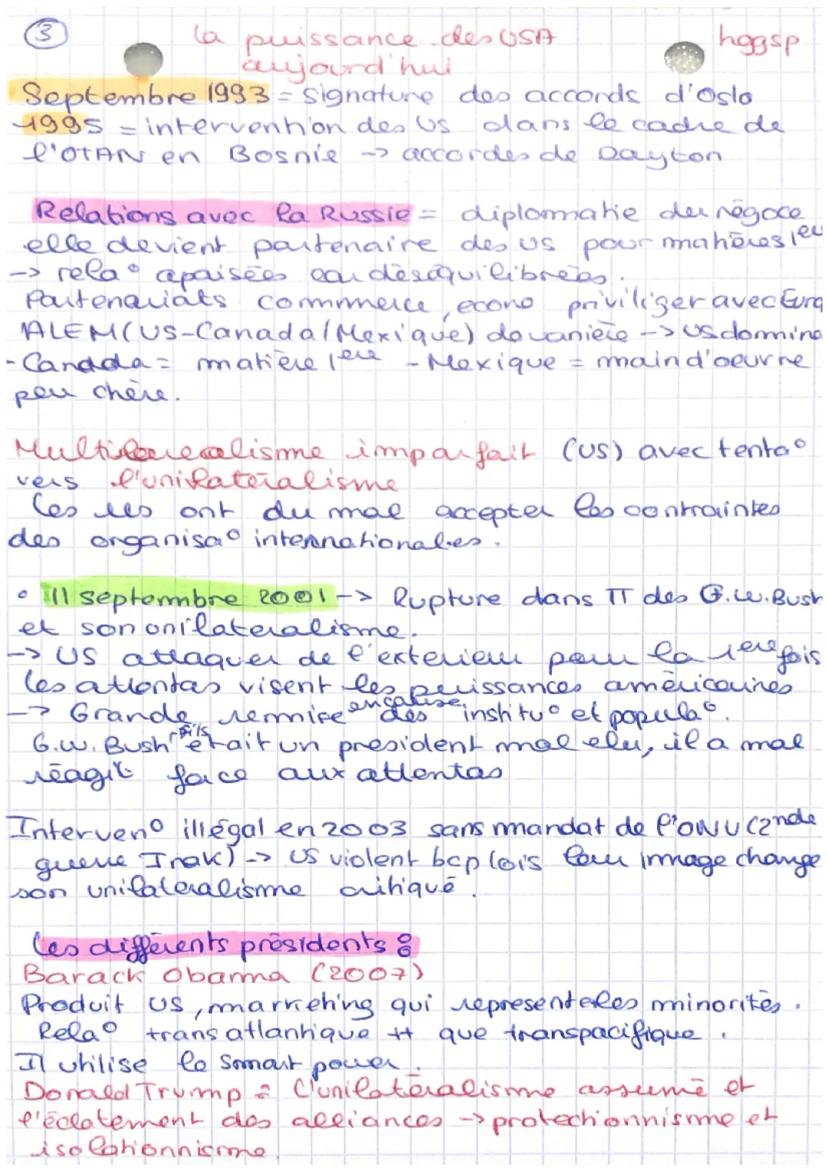 ③ La puissance des USA hggsp
aujourd'hui
Septembre 1993 = signature des accords d'Oslo
1995 = intervention des US dans le cadre de
l'OTAN en Bosnie -> accordes de Dayton
Relations avec la Russie = diplomatie du négoce
elle devient partenaire des US pour matières 1ères
-> rela° apaisées car déséquilibrées.
Partenariats commerce, econo priviliger avec Euro
ALEM (US-Canada/Mexique) douanière -> US domine
- Canada = matière 1ere - Mexique = main d'oeuvre
peu chère.
imparfait (US) avec tenta°
vers l'unilatéralisme
Les US ont du mal accepter les contraintes
des organisa° internationales.
° 11 septembre 2001 -> Rupture dans π des G.W. Bush
et son onilateralisme.
-> US attaquer de l'exterieur pour la 1ere fois
les attentas visent les puissances américaines
-> Grande remise en cause des institu° et popula°.
G.W. Bush fils était un president mal elu, il a mal
réagit face aux attentas
Interven° illégal en 2003 sans mandat de l'ONU (2nde
guerre Irak) -> US violent bcp lois leur image change
son unilateralisme critiqué.
Les différents présidents :
Barack Obama (2007)
Produit US, marketing qui represente les minorités.
Rela° transatlantique ++ que transpacifique.
Il utilise le smart power.
Donald Trump = L'unilatéralisme assumé et
l'éclatement des alliances -> protectionnisme et
isolationnisme.